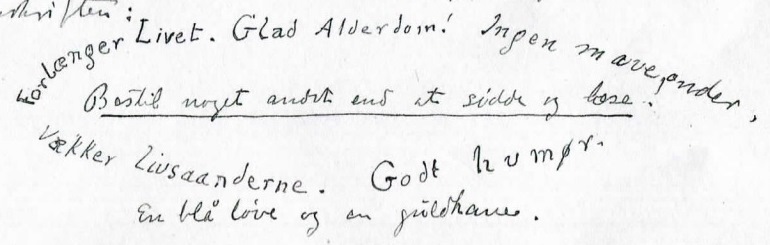 skriften:
Forlænger Livet. Glad Alderdom! Ingen maveonder,
Bestil noget andet end at sidde og læse.
Vækker Livsaanderne. Godt humør.
En blå løve og en guldhane.